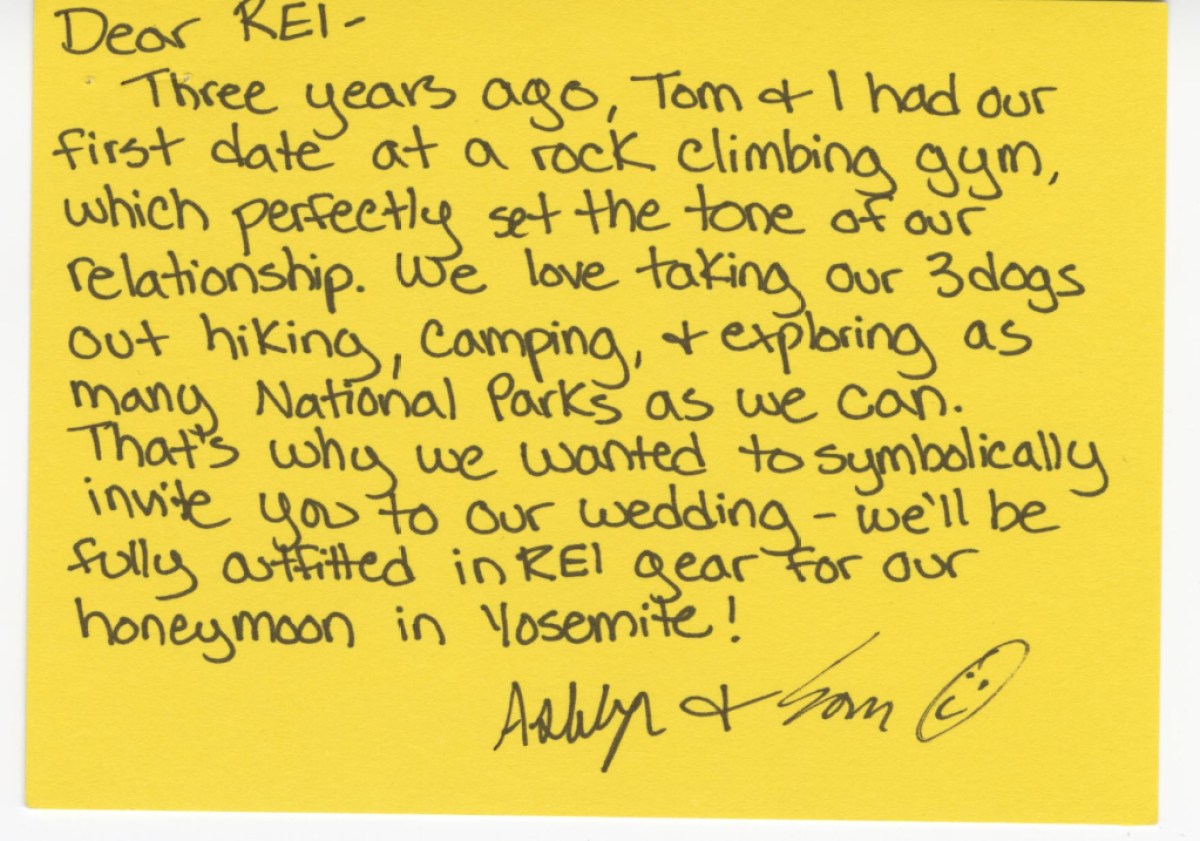 Dear REI-
Three years ago, Tom & I had our
first date at a rock climbing gym,
which perfectly set the tone of our
relationship. We love taking our 3 dogs
out hiking, camping, & exploring as
many National Parks as we can.
That's why we wanted to symbolically
invite you to our wedding - we'll be
fully outfitted in REI gear for our
honeymoon in Yosemite!
Ashlyn & Tom